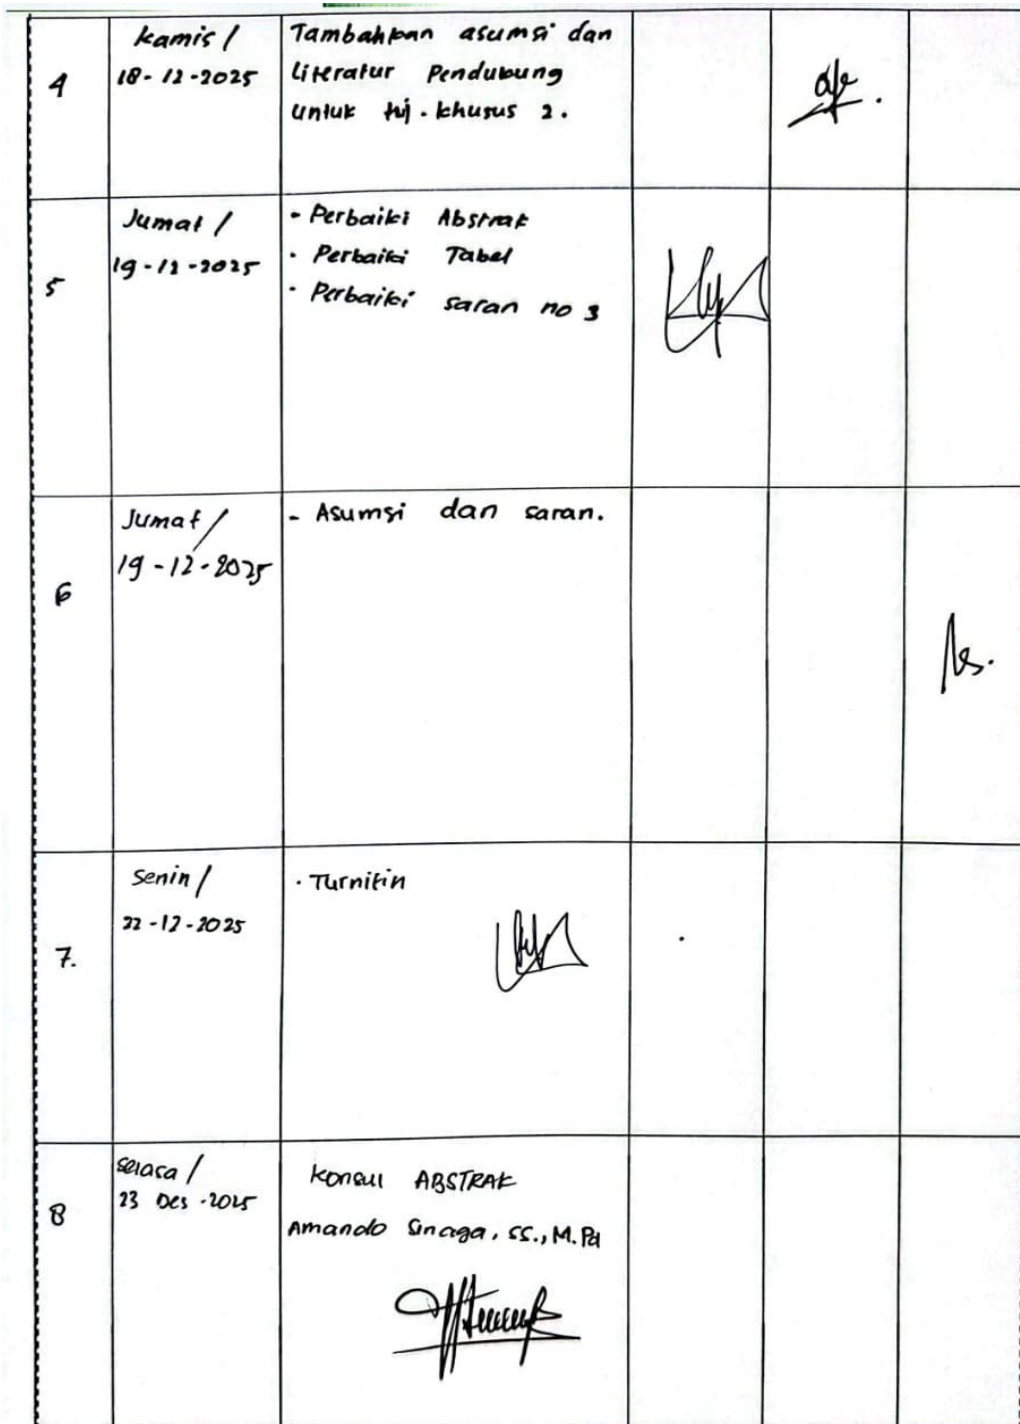 4
Kamis /
18-12-2025
Tambahkan asumsi dan
Literatur Pendukung
untuk tuj. khusus 2.
5
Jumat /
19-12-2025
- Perbaiki Abstrak
- Perbaiki Tabel
- Perbaiki saran no 3
6
Jumat /
19-12-2025
- Asumsi dan saran.
7.
Senin /
22-12-2025
- Turnitin
8
Selasa /
23 Des - 2025
Konsul ABSTRAK
Amando Sinaga, SS., M.Pd